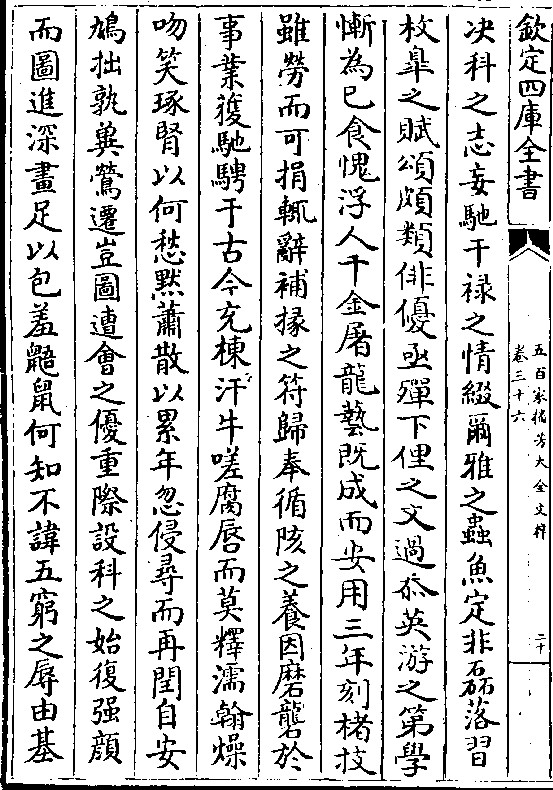 欽定四庫全書
五百家播芳大全文粹
卷三十六
二十
决科之志妄馳干禄之情綴爾雅之蟲魚定非磊落習
枚皋之賦頌頗類俳優亟殫下俚之文過忝英游之第學
慚為己食愧浮人千金屠龍藝既成而安用三年刻楮技
雖勞而可捐輒辭補掾之符歸奉循陔之養因磨礲於
事業復馳騁于古今充棟汗牛嗟腐唇而莫釋濡翰燥
吻笑琢腎以何愁黙蕭散以累年忽侵尋而再閏自安
鳩拙孰冀鶯遷豈圖遭會之優重際設科之始復强顔
而圖進深畫足以包羞鼯鼠何知不諱五窮之辱由基